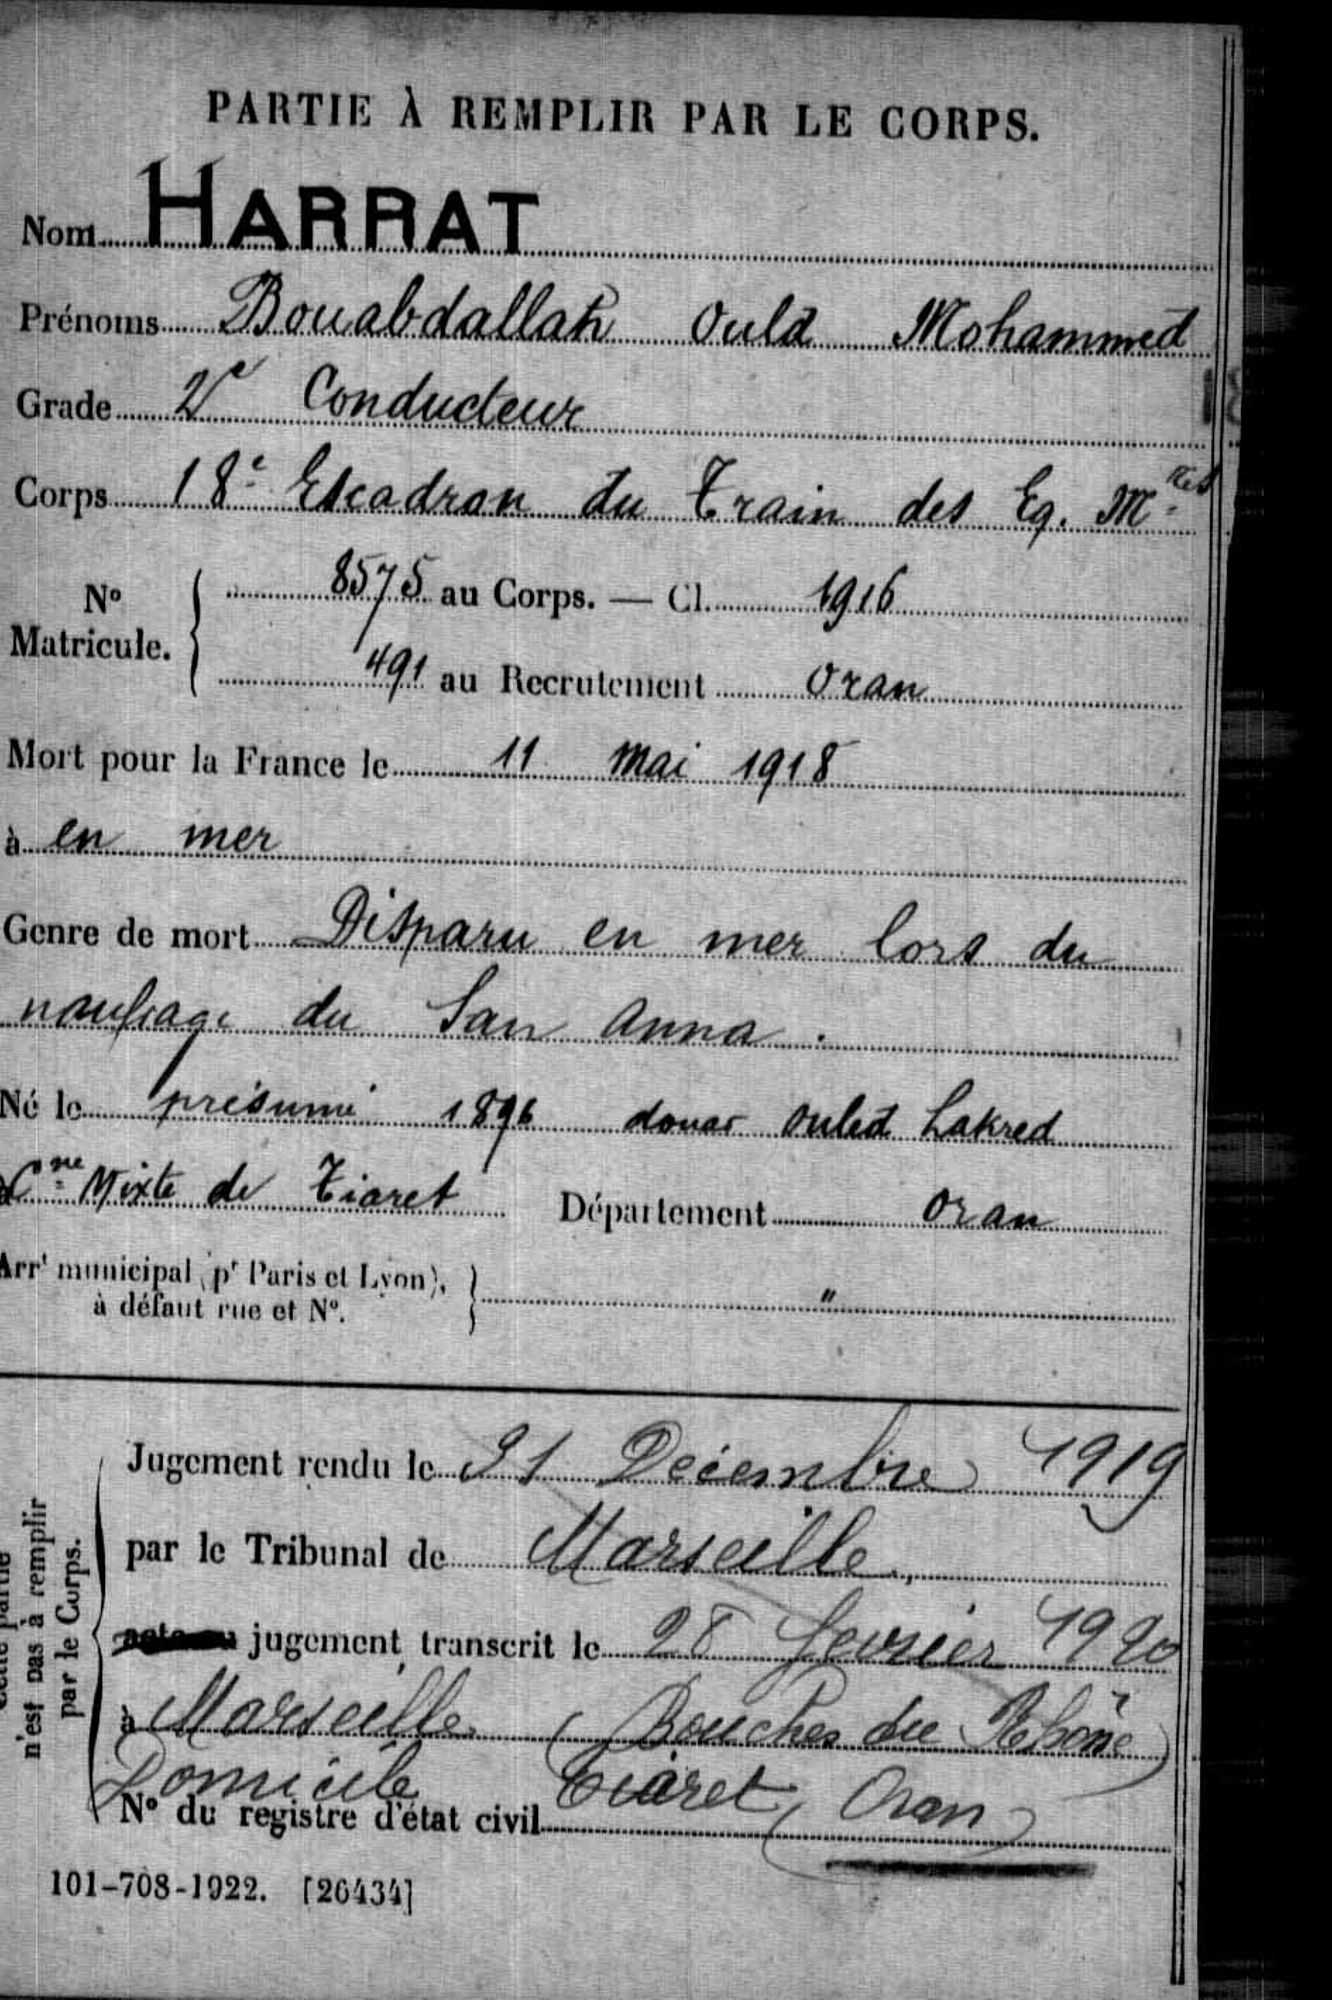 PARTIE À REMPLIR PAR LE CORPS.
Nom HARRAT
Prénoms Bouabdallah Ould Mohammed
Grade 2e Conducteur
Corps 18e Escadron du Train des Eq. Mres
No Matricule. { 8575 au Corps. — Cl. 1916
491 au Recrutement Oran
Mort pour la France le 11 mai 1918
à en mer
Genre de mort Disparu en mer lors du
naufrage du San Anna.
Né le présumé 1896 douar Ouled Lakred
à Cne Mixte de Tiaret Département Oran
Arrt municipal (pr Paris et Lyon), à défaut rue et No. } "
Jugement rendu le 31 Décembre 1919
par le Tribunal de Marseille
acte ou jugement transcrit le 28 février 1920
à Marseille (Bouches du Rhône)
Domicile Tiaret (Oran)
No du registre d'état civil
n'est pas à remplir
par le Corps.
101-708-1922. [26434]